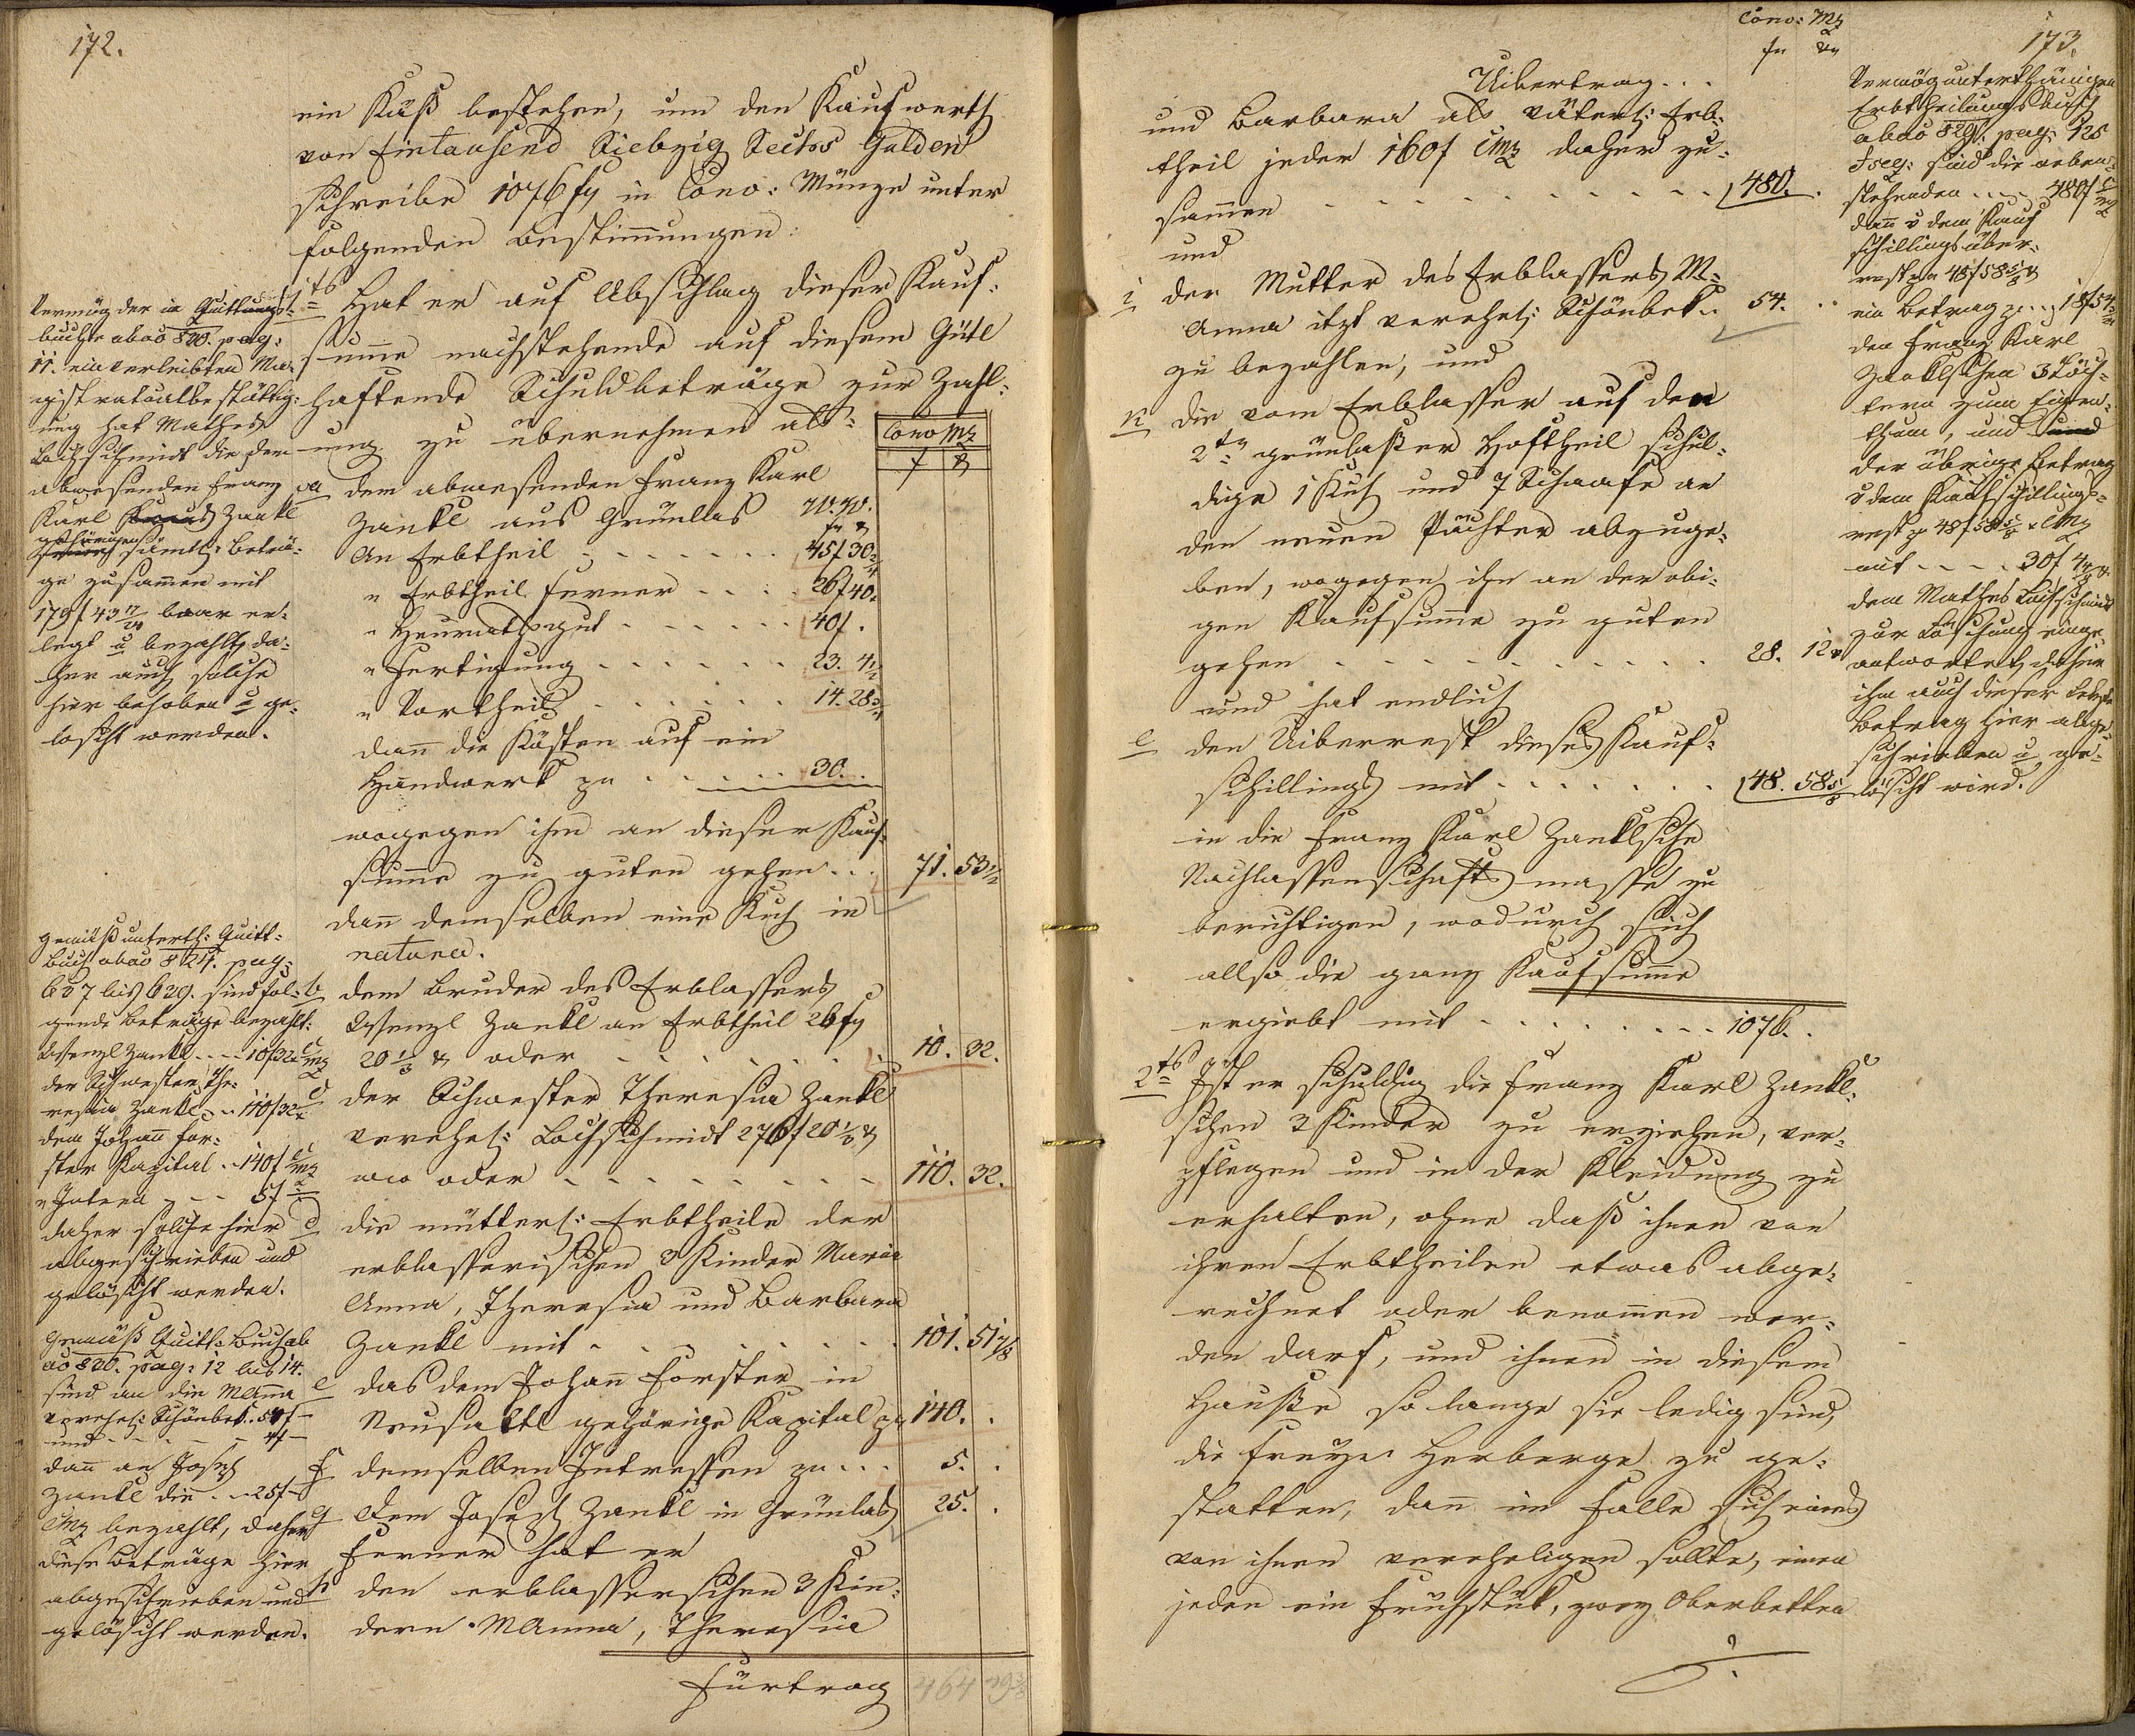 172.
ein Küß bestehen, um den Kaufwerth
von Eintausend Siebzig Sechs Gulden
schreibe 1076 fr in Conv: Münze unter
folgenden Bestimmungen:
1tens Hat er auf Abschlag dieser Kauf-
summe nachstehende auf diesem Gute
haftende Schuldbeträge zur Zahl-
ung zu übernehmen als:
Conv Mz
f x
a dem abwesenden Franz Karl
Zankl aus Grünlas W. W.
fr x
An Erbtheil . . . . . 45f 30 2/4
" Erbtheil ferner . . . . 26f 40.
" Heurathsgut . . . . . 40f.
" Fertigung . . . . . . 23. 4 1/2
" Vortheil . . . . . . 14. 28 3/4
dann die Kösten auf ein
Handwerk zu . . . . . 30. .
wogegen ihm an dieser Kauf-
summe zu guten gehen . . . 71. 53 1/2
dann demselben eine Kuh in
natura.
b dem Bruder des Erblassers
Wenzl Zankl an Erbtheil 26 fr
20 1/3 x oder . . . . . . 10. 32.
c der Schwester Theresia Zankl
verehel: Lochschmidt 276f 20 1/3 x
ww oder . . . . . . . 110. 32.
d die mütterl: Erbtheile der
erblasserischen 3 Kinder Maria
Anna, Theresia und Barbara
Zankl mit . . . . . . 101. 51 7/8
e das dem Johann Forster in
Neusattl gehörige Kapital pr 140. .
f demselben Intressen zu . . . 5. .
g Dem Joseph Zankl in Grünlas 25. .
Ferner hat er
h den erblasserschen 3 Kin-
dern MAnna, Theresia
Fürtrag 464 29 3/8
Vermög der im Quittungs-
buche abao 820. pag:
11. einverleibten Ma-
gistratualbestättig-
ung hat Mathes
Lochschmidt die dem
abwesenden Franz
Karl Zankl
gehörigen
sämtl: Beträ-
ge zusammen mit
179f 43 17/24 baar er-
legt u bezahlt, da-
her auch solche
hier behoben u ge-
löscht werden.
gemäß unterth: Quitt-
buch abao 821. pag:
637 bis 639. sind fol-
gende Beträge bezahlt:
Wenzl Zankl . . . . 10f 32x CMz
der Schwester The-
resia Zankl . . 110f 32x
dem Johann For-
ster Kapital . . 140f CMz
" Intren . . . 5f
daher solche hier
abgeschrieben und
gelöscht werden.
Gemäß Quitt: Buch ab
ao 820. pag: 12 bis 14.
sind an die MAnna
verehel: Schönbek. 50f -
und - - - - 4f -
dann an Joseph
Zankl die . . 25f -
CMz bezahlt, daher
diese Beträge hier
abgeschrieben und
gelöscht werden.
173.
Conv: Mz
fr xr
Uibertrag . . .
und Barbara als väterl: Erb-
theil jeder 160f CMz daher zu-
sammen . . . . . . . . 480. .
und
i der Mutter des Erblassers M-
Anna itzt verehel: Schönbek . . 54. . .
zu bezahlen, und
k die vom Erblasser auf den
2ten grünlaßer Hoftheil schul-
dige 1 Kuh und 7 Schaafe an
den neuen Pächter abzuge-
ben, wogegen ihm an der obi-
gen Kaufsumme zu guten
gehen . . . . . . . . . 28. 12x
und hat endlich
l den Uiberrest dieses Kauf-
schillings mit . . . . . . 48. 58 5/8
in die Franz Karl Zanklsche
Nachlassenschaftsmasse zu
berichtigen, wodurch sich
allso die ganz Kaufsumme
ergiebt mit . . . . . . . 1076. .
2tens Ist er schuldig die Franz Karl Zankl-
schen 3 Kinder zu erziehen, ver-
pflegen und in der Kleidung zu
erhalten, ohne daß ihnen von
ihren Erbtheilen etwas abge-
rechnet oder benommen wer-
den darf, und ihnen in diesem
Hauße so lange sie ledig sind,
die freye Herberge zu ge-
statten, dann im Falle sich eines
von ihnen verehligen sollte, einen
jeden ein Fruhstük, zwey Oberbetten
./.
Vermög unterthänigen
Erbtheilungsbuch
abao 829. pag: 125
& seq: sind die neben-
stehenden . . . 480f CMz
dann v dem Kauf
schillingsüber-
rest pr 48f 58 5/8 x
ein Betrag pr . . 18f 54
den Franz Karl
Zanklschen 3 Töch-
tern zum Eigen-
thum, und
der übrige Betrag
v dem Kaufschillings-
rest pr 48f 58 5/8 x CMz
mit . . . . 30f 4
dem Mathes Lochschmidt
zur Löschung einge-
antwortet, daher
ihm auch dieser letzte
Betrag hier abge-
schrieben u ge-
löscht wird.